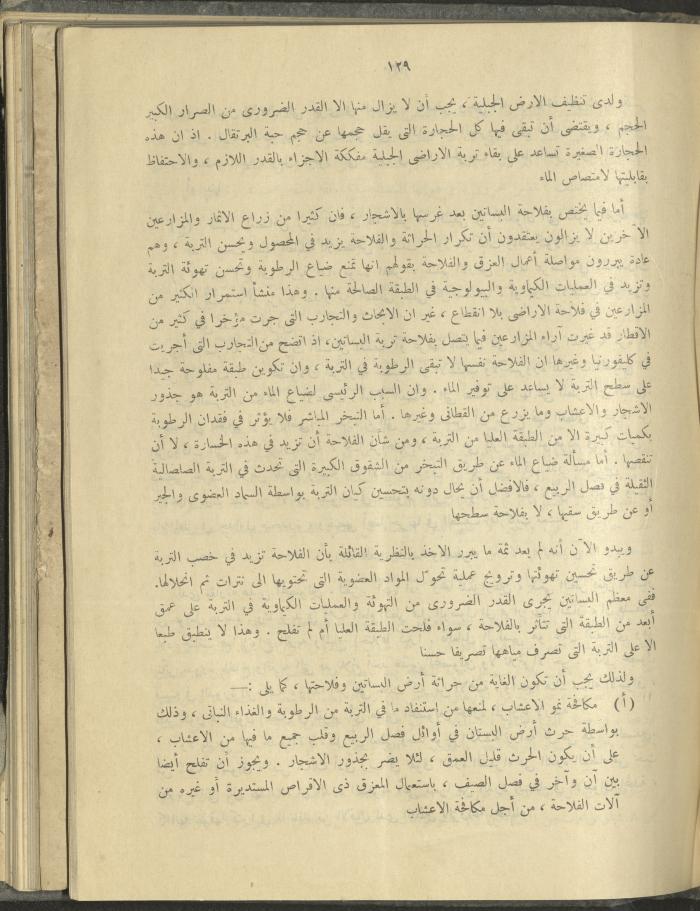 ١٢٩
ولدى تنظيف الارض الجبلية ، يجب أن لا يزال منها الا القدر الضرورى من الصرار الكبير
الحجم ، ويقتضى أن تبقى فيها كل الحجارة التى يقل حجمها عن حجم حبة البرتقال . اذ ان هذه
الحجارة الصغيرة تساعد على بقاء تربة الاراضى الجبلية مفككة الاجزاء بالقدر اللازم ، والاحتفاظ
بقابليتها لامتصاص الماء
أما فيما يختص بفلاحة البساتين بعد غرسها بالاشجار ، فان كثيرا من زراع الاثمار والمزارعين
الآخرين لا يزالون يعتقدون أن تكرار الحراثة والفلاحة يزيد في المحصول ويحسن التربة ، وهم
عادة يبررون مواصلة أعمال العزق والفلاحة بقولهم انها تمنع ضياع الرطوبة وتحسن تهوئة التربة
وتزيد في العمليات الكيماوية والبيولوجية في الطبقة الصالحة منها . وهذا منشأ استمرار الكثير من
المزارعين في فلاحة الاراضى بلا انقطاع ، غير ان الابحاث والتجارب التى جرت مؤخرا في كثير من
الاقطار قد غيرت آراء المزارعين فيما يتصل بفلاحة تربة البساتين، اذ اتضح من التجارب التى أجريت
في كليفورنيا وغيرها ان الفلاحة نفسها لا تبقى الرطوبة في التربة ، وان تكوين طبقة مفلوحة جيدا
على سطح التربة لا يساعد على توفير الماء . وان السبب الرئيسى لضياع الماء من التربة هو جذور
الاشجار والاعشاب وما يزرع من القطانى وغيرها . أما التبخر المباشر فلا يؤثر في فقدان الرطوبة
بكميات كبيرة الا من الطبقة العليا من التربة ، ومن شأن الفلاحة أن تزيد في هذه الخسارة ، لا أن
تنقصها . أما مسألة ضياع الماء عن طريق التبخر من الشقوق الكبيرة التى تحدث في التربة الصلصالية
الثقيلة في فصل الربيع ، فالافضل أن يحال دونه بتحسين كيان التربة بواسطة السماد العضوى والجير
أو عن طريق سقيها ، لا بفلاحة سطحها
ويبدو الآن أنه لم يعد ثمة ما يبرر الاخذ بالنظرية القائلة بأن الفلاحة تزيد في خصب التربة
عن طريق تحسين تهوئتها وترويج عملية تحوّل المواد العضوية التى تحتويها الى نترات ثم انحلالها.
ففى معظم البساتين يجرى القدر الضرورى من التهوئة والعمليات الكيماوية في التربة على عمق
أبعد من الطبقة التى تتأثر بالفلاحة ، سواء فلحت الطبقة العليا أم لم تفلح . وهذا لا ينطبق طبعا
الا على التربة التى تصرف مياهها تصريفا حسنا
ولذلك يجب أن تكون الغاية من حراثة أرض البساتين وفلاحتها ، كما يلى :—
(أ) مكافحة نمو الاعشاب ، لمنعها من استنفاد ما في التربة من الرطوبة والغذاء النباتى ، وذلك
بواسطة حرث أرض البستان في أوائل فصل الربيع وقلب جميع ما فيها من الاعشاب ،
على أن يكون الحرث قليل العمق ، لئلا يضر بجذور الاشجار . ويجوز أن تفلح أيضا
بين آن وآخر في فصل الصيف ، باستعمال المعزق ذى الاقراص المستديرة أو غيره من
آلات الفلاحة ، من أجل مكافحة الاعشاب